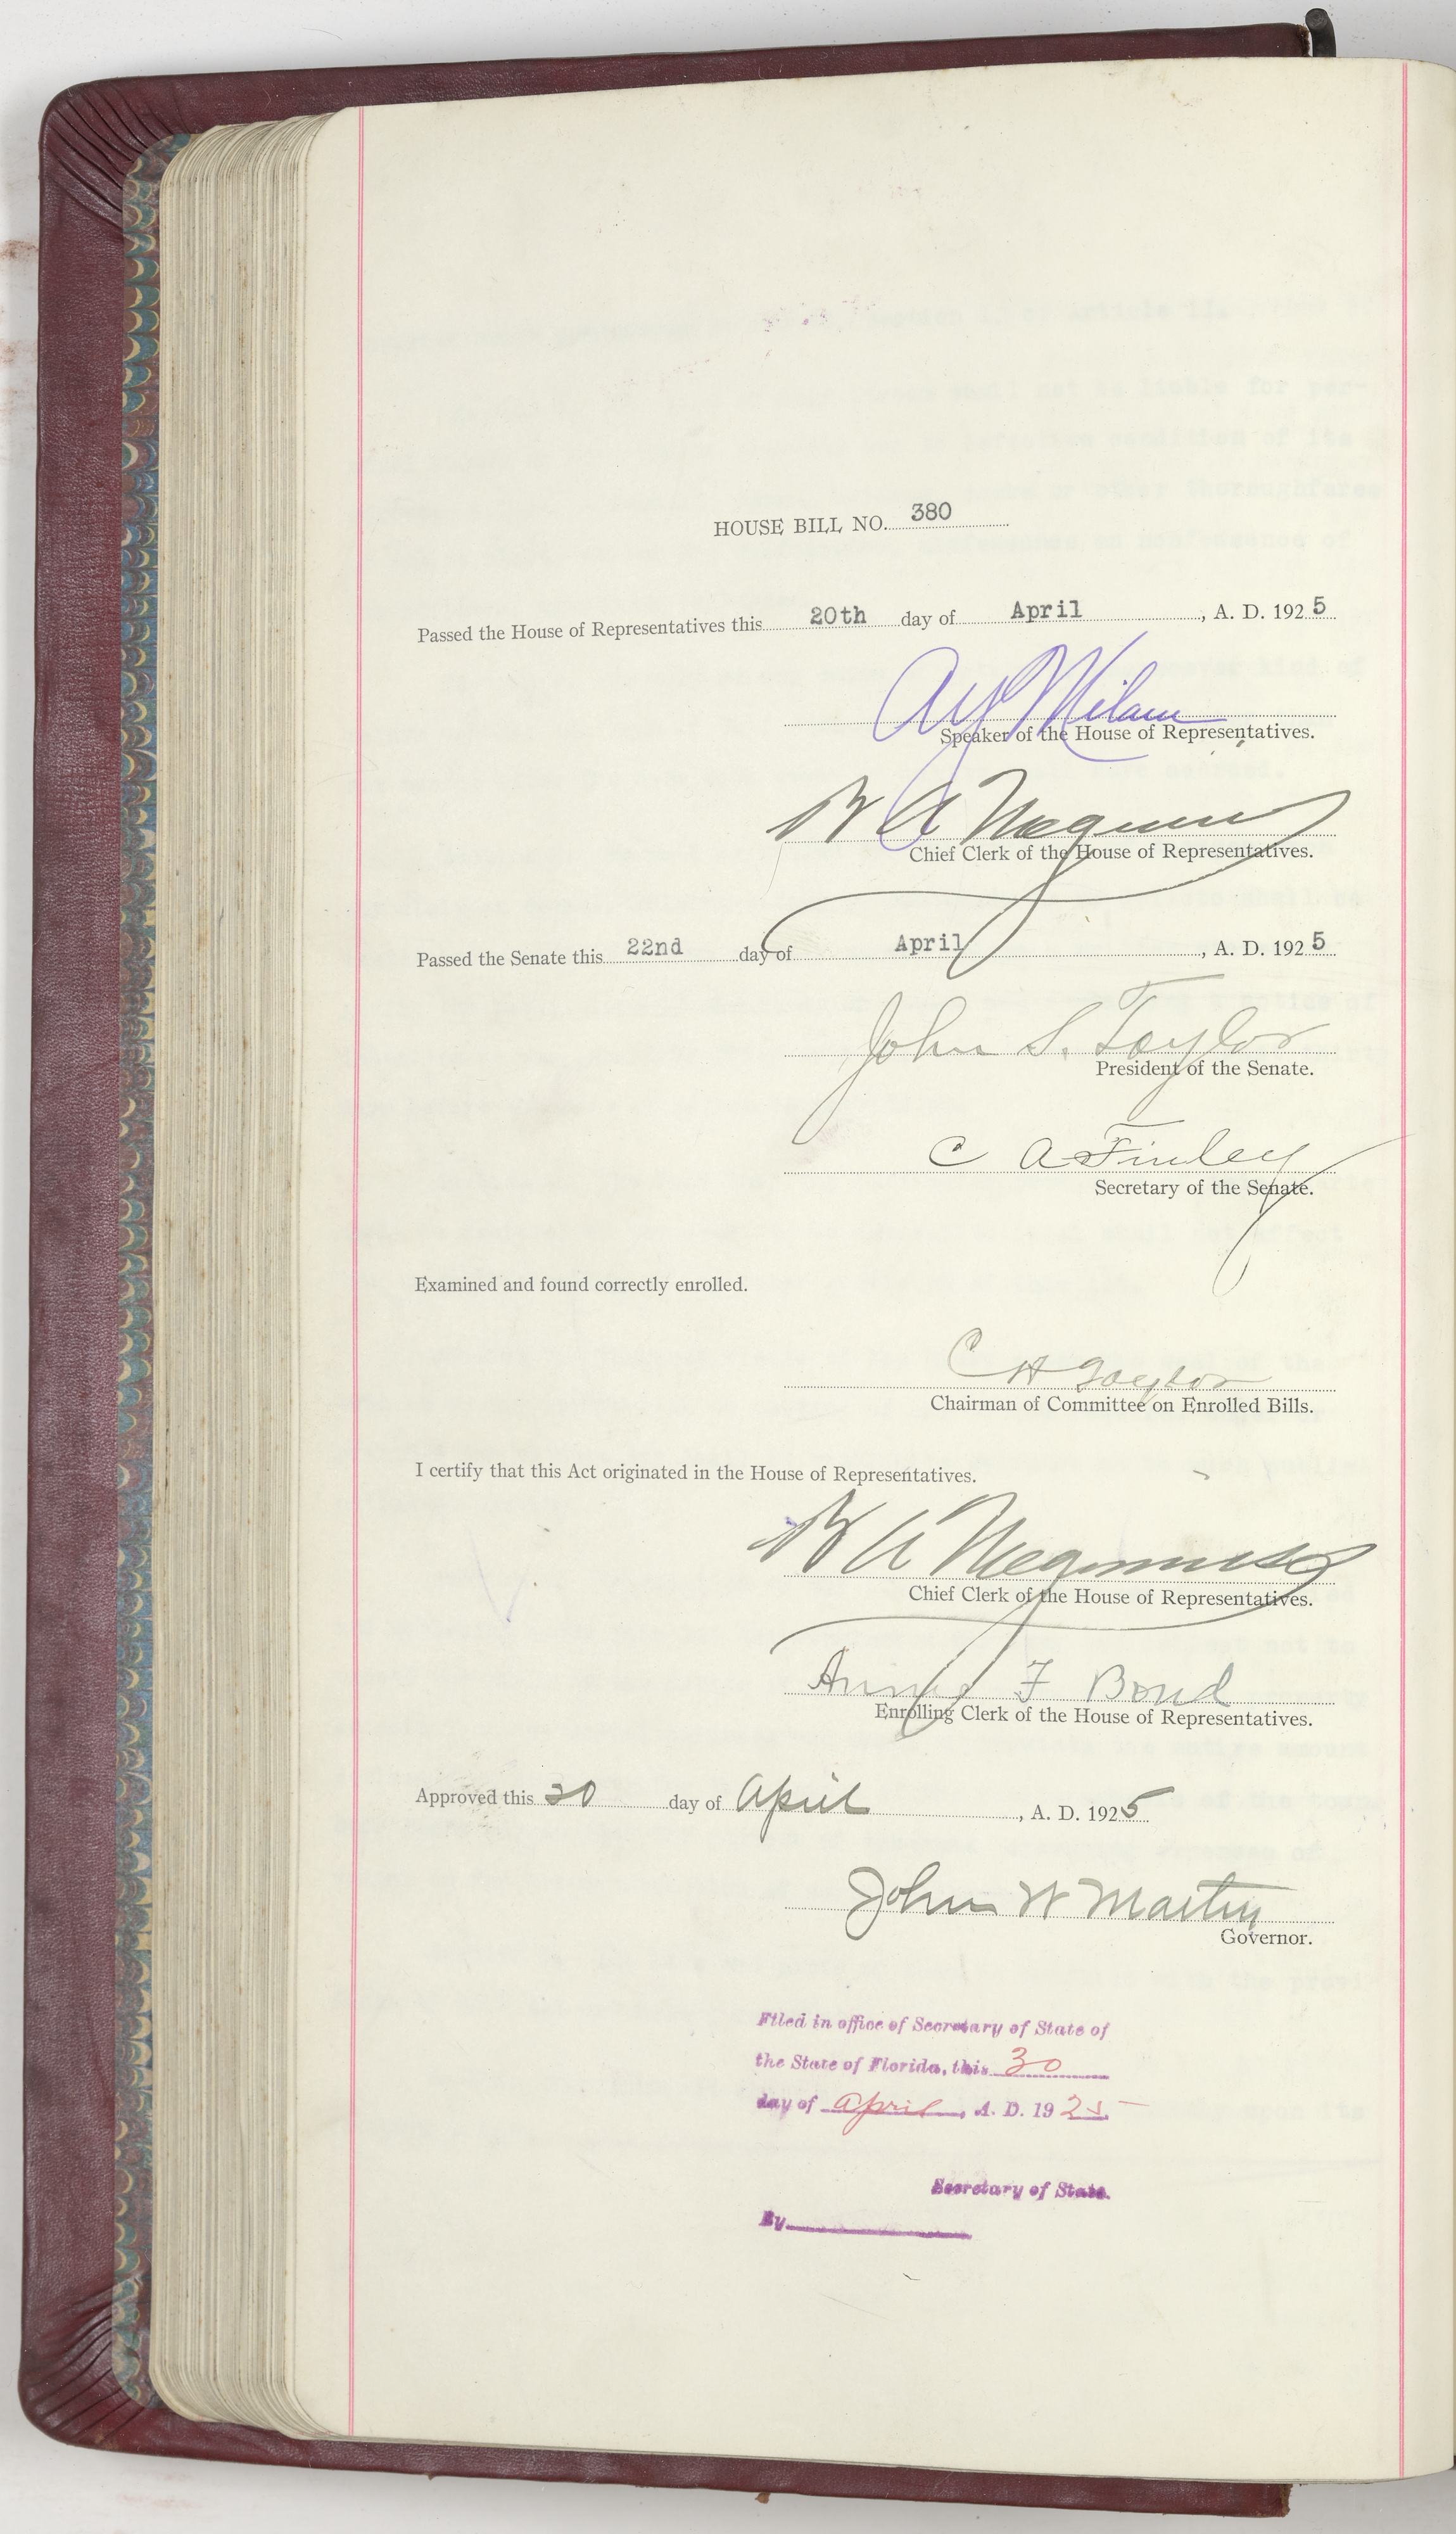 HOUSE BILL NO. 380
Passed the House of Representatives this 20th day of April, A. D. 1925
A Y Milam
Speaker of the House of Representatives.
B A Meginniss
Chief Clerk of the House of Representatives.
Passed the Senate this 22nd day of April, A. D. 1925
John S. Taylor
President of the Senate.
C A Finley
Secretary of the Senate.
Examined and found correctly enrolled.
C H Taylor
Chairman of Committee on Enrolled Bills.
I certify that this Act originated in the House of Representatives.
B A Meginniss
Chief Clerk of the House of Representatives.
Annie F Bond
Enrolling Clerk of the House of Representatives.
Approved this 30 day of April, A. D. 1925
John W Martin
Governor.
Filed in office of Secretary of State of
the State of Florida, this 30
day of April, A. D. 1925
Secretary of State.
By